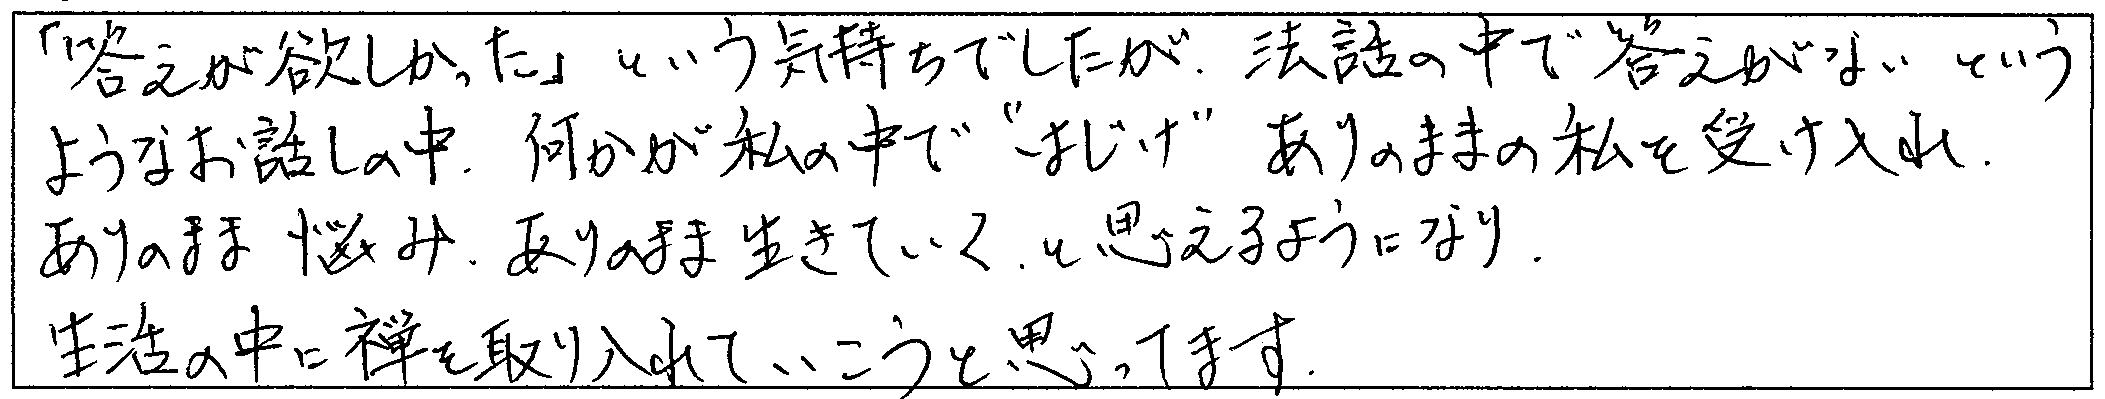 「答えが欲しかった」という気持ちでしたが、法話の中で答えがないという
ようなお話しの中、何かが私の中で"はじけ"ありのままの私を受け入れ、
ありのまま悩み、ありのまま生きていく、と思えるようになり、
生活の中に禅を取り入れていこうと思ってます。